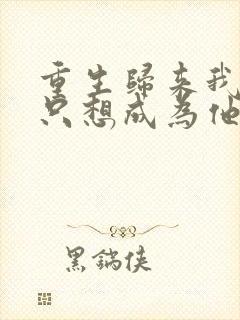 重生歸来我
只想成為他
黑鍋俠